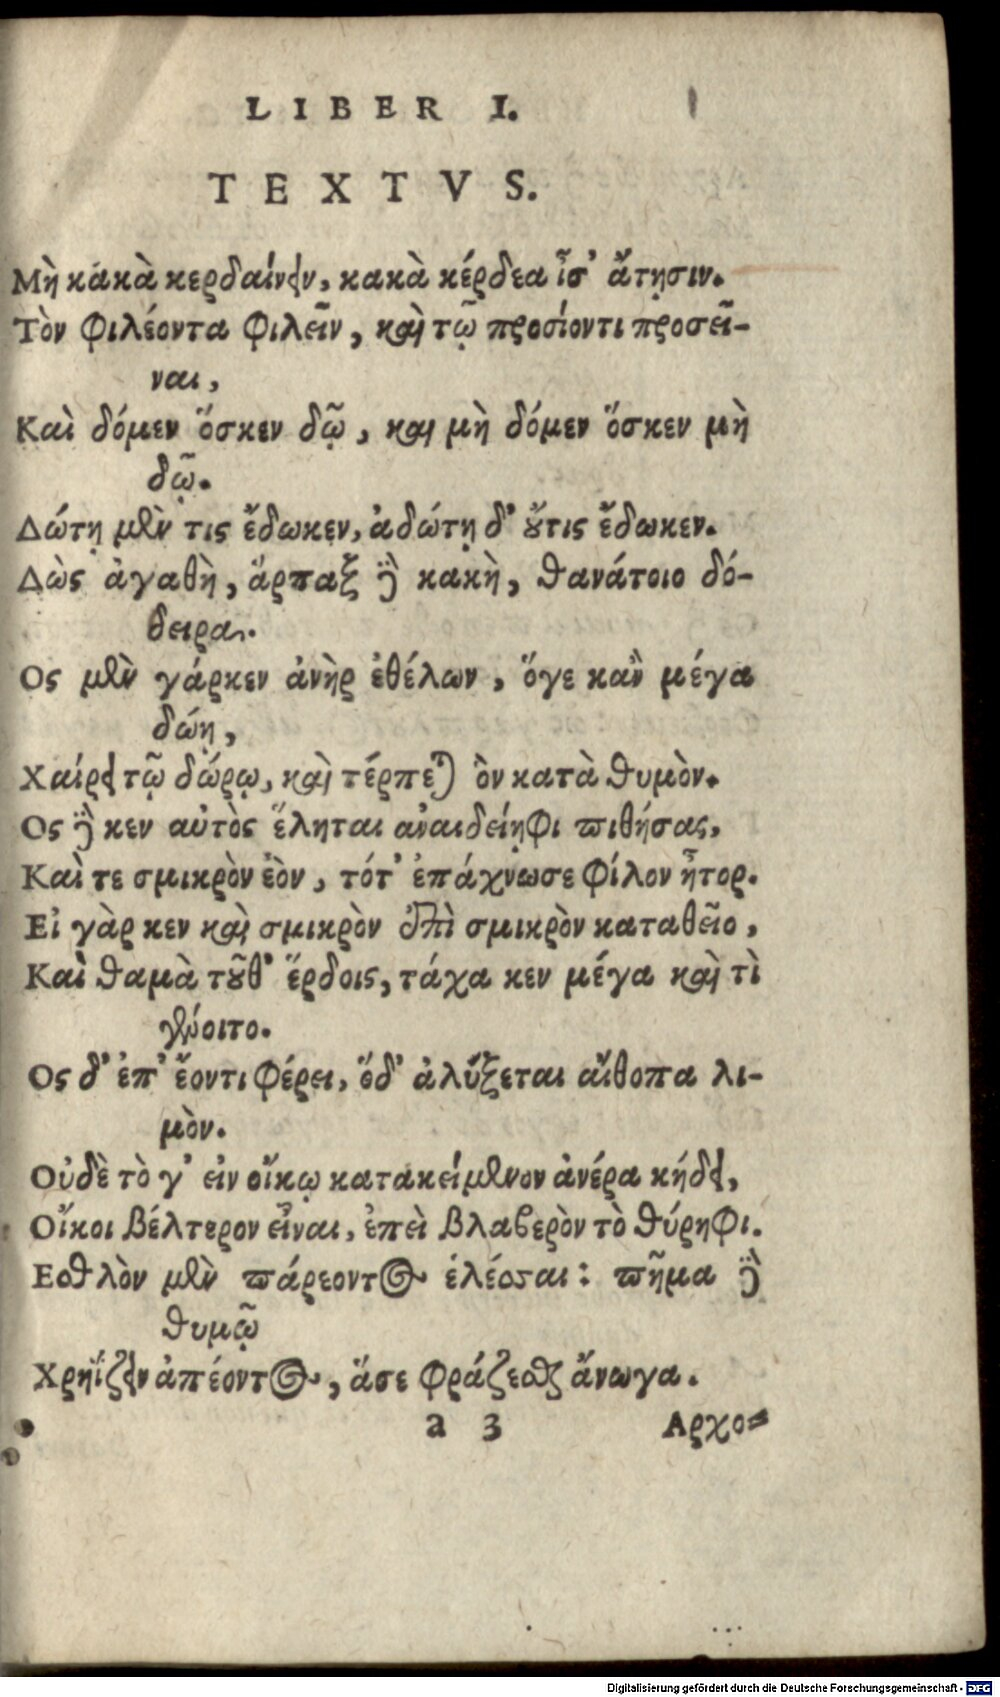 LIBER I.
TEXTVS.
Μὴ κακὰ κερδαίνειν, κακὰ κέρδεα ἶσ’ ἄτῃσιν.
Τὸν φιλέοντα φιλεῖν, καὶ τῷ προσίοντι προσεῖ-
ναι,
Καὶ δόμεν ὅσκεν δῷ, καὶ μὴ δόμεν ὅσκεν μὴ
δῷ.
Δώτῃ μὲν τις ἔδωκεν, ἀδώτῃ δ’ οὔτις ἔδωκεν.
Δὼς ἀγαθὴ, ἅρπαξ δὲ κακὴ, θανάτοιο δό-
δειρα.
Ος μὲν γάρκεν ἀνὴρ ἐθέλων, ὅγε κἂν μέγα
δώη,
Χαίρει τῷ δώρῳ, καὶ τέρπεται ὃν κατὰ θυμὸν.
Ος δὲ κεν αὐτὸς ἕληται ἀναιδείηφι πιθήσας,
Καὶ τε σμικρὸν ἐὸν, τότ’ ἐπάχνωσε φίλον ἦτορ.
Εἰ γὰρ κεν καὶ σμικρὸν ἐπὶ σμικρὸν καταθεῖο,
Καὶ θαμὰ τοῦθ’ ἕρδοις, τάχα κεν μέγα καὶ τὶ
γένοιτο.
Ος δ’ ἐπ’ ἔοντι φέρει, ὅδ’ ἀλύξεται αἴθοπα λι-
μὸν.
Οὐδὲ τὸ γ’ εἰν οἴκῳ κατακείμενον ἀνέρα κήδει,
Οἴκοι βέλτερον εἶναι, ἐπεὶ βλαβερὸν τὸ θύρηφι.
Εσθλὸν μὲν πάρεοντος ἑλέσται: πῆμα δὲ
θυμῷ
Χρηΐζειν ἀπέοντος, ἅσε φράζεσθαι ἄνωγα.
a 3 Αρχο=
Digitalisierung gefördert durch die Deutsche Forschungsgemeinschaft - DFG